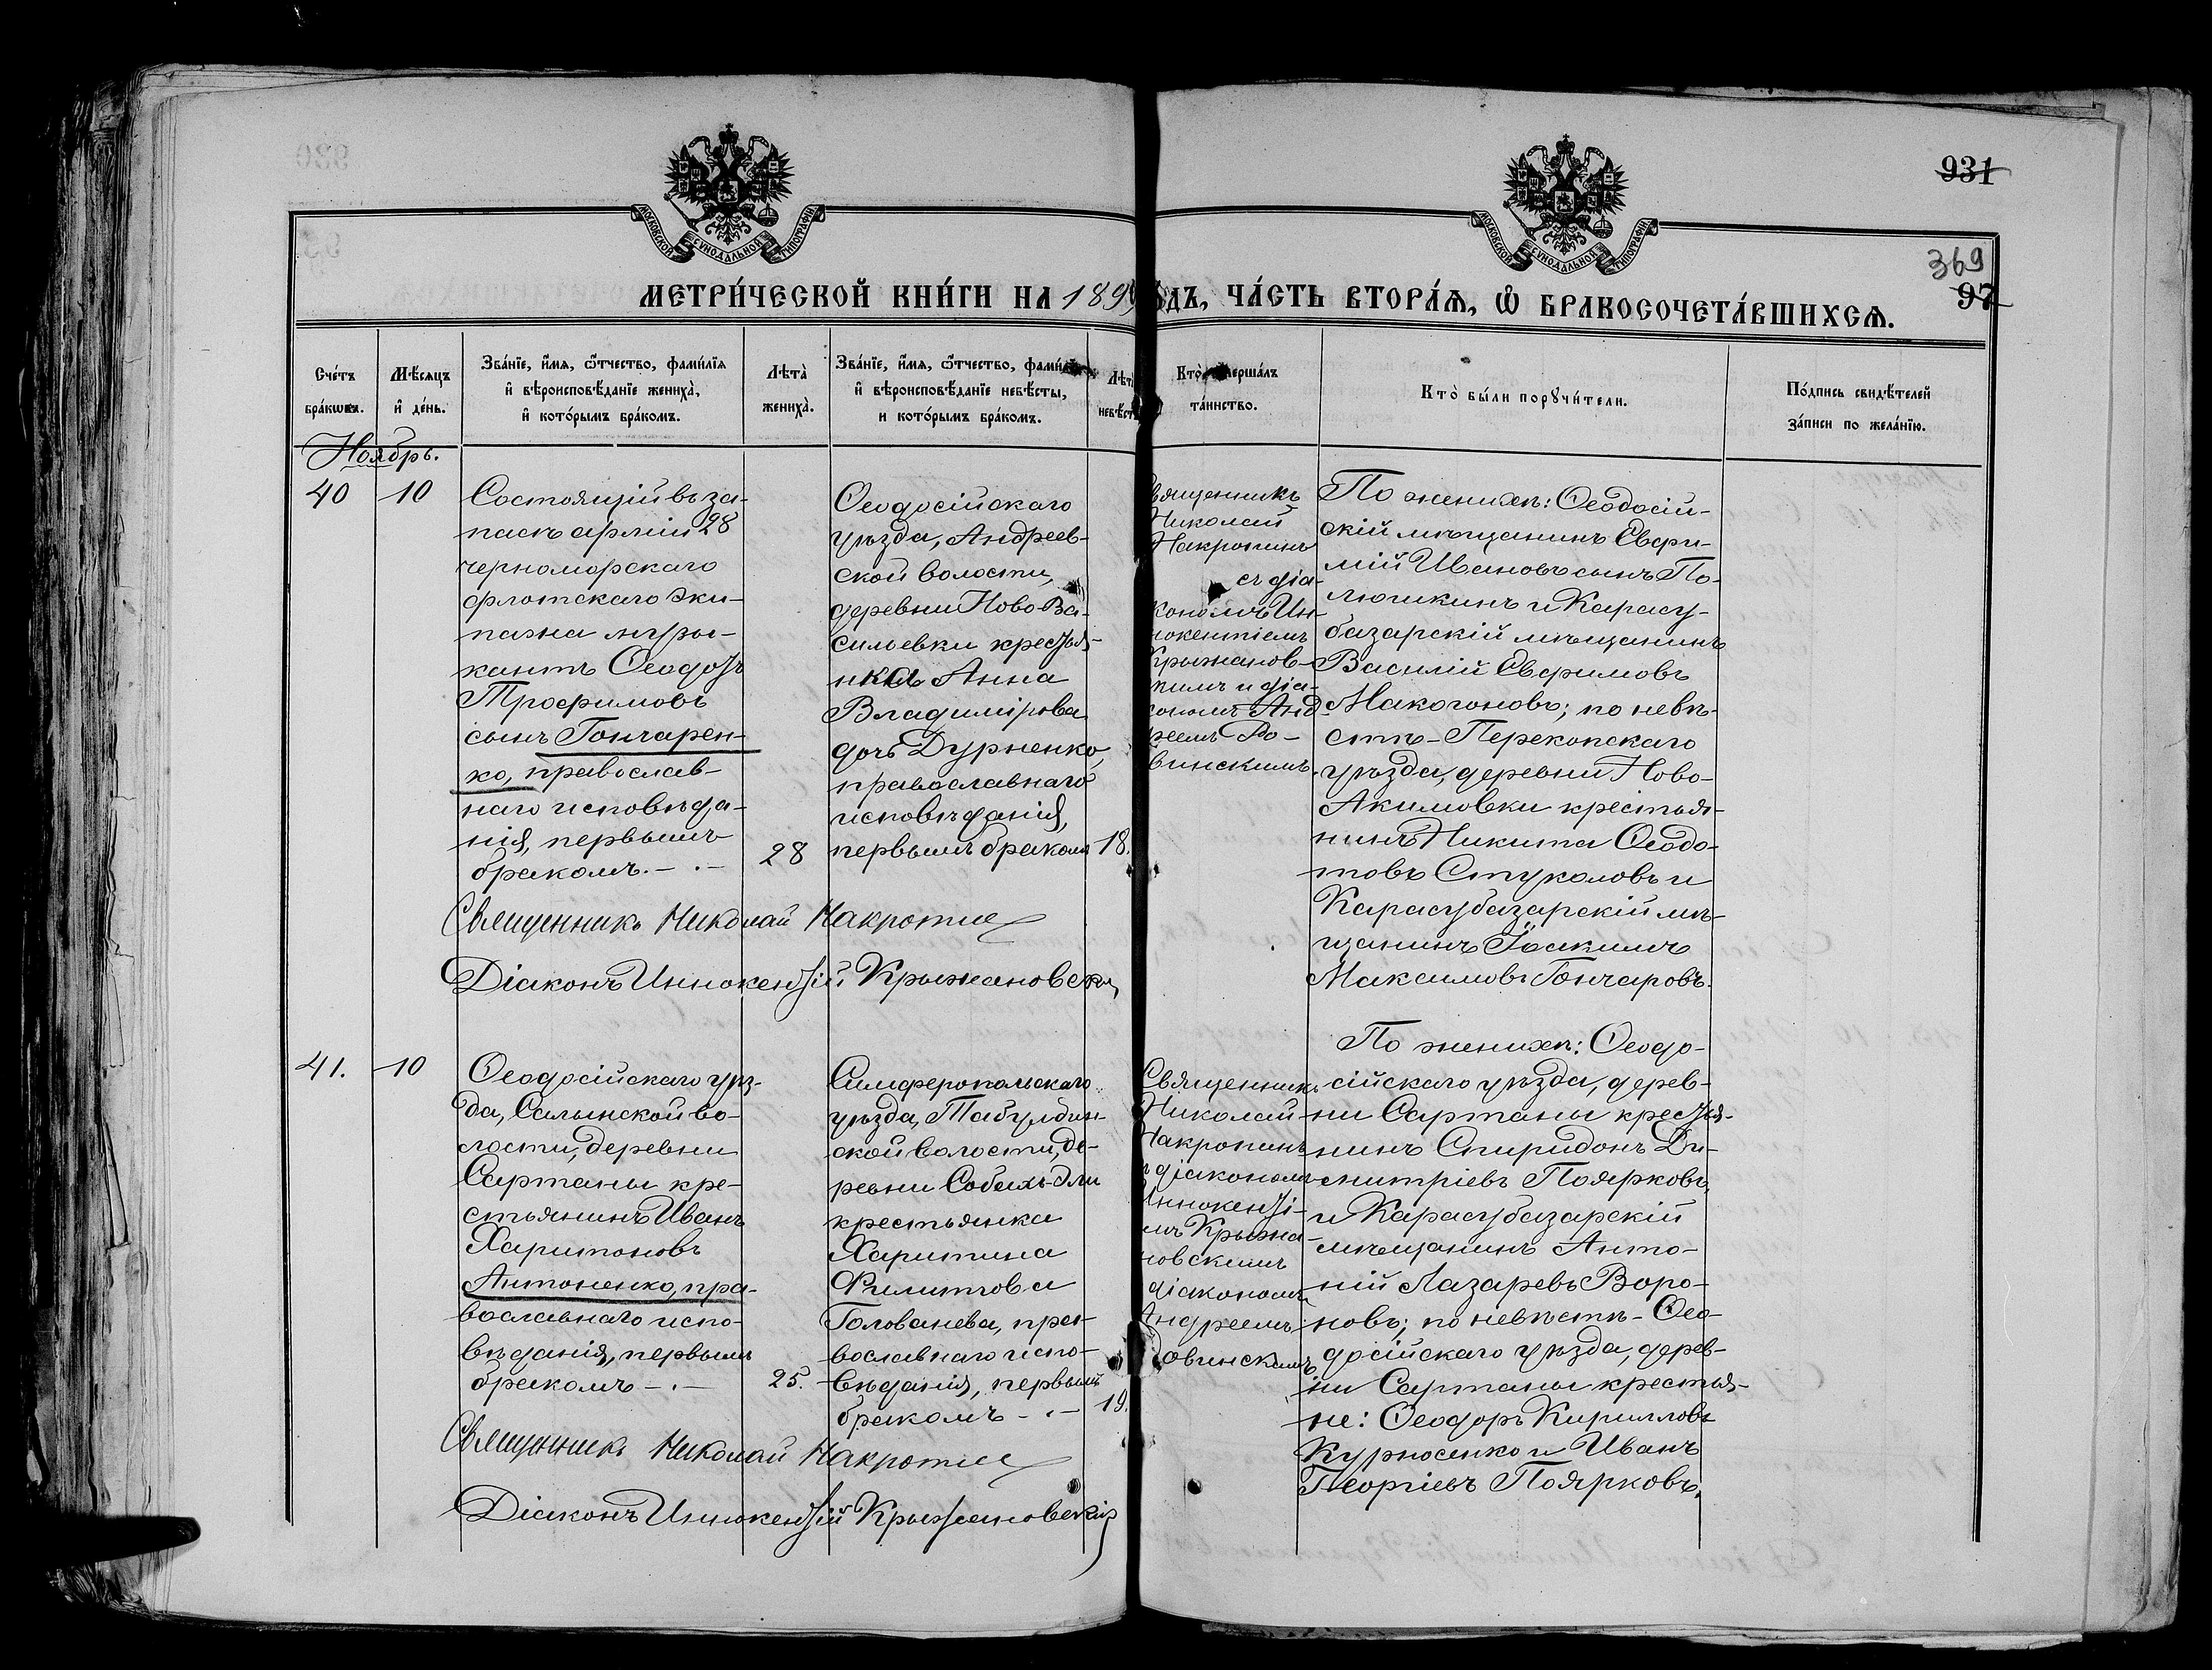 931
369
97
МОСКОВСКОЙ СѴНОДАЛЬНОЙ ТИПОГРАФІИ.
МОСКОВСКОЙ СѴНОДАЛЬНОЙ ТИПОГРАФІИ.
МЕТРИ́ЧЕСКОЙ КНИ́ГИ НА 189 ДЪ, ЧА́СТЬ ВТОРА́Ѧ, Ѽ БРАКОСОЧЕТА́ВШИХСѦ.
Сче́тъ
бра́кѡвъ.
Мѣ́сѧцъ
и҆ де́нь.
Зва́нїе, и҆́мѧ, ѻ҆́тчество, фами́лїѧ
и҆ вѣроисповѣ́данїе жениха̀,
и҆ кото́рымъ бра́комъ.
Лѣта̀
жениха̀.
Зва́нїе, и҆́мѧ, ѻ҆́тчество, фами́
и҆ вѣроисповѣ́данїе невѣ́сты,
и кото́рымъ бра́комъ.
Лѣт
невѣст
Кто̀ вершáлъ
та́инство.
Кто̀ бы́ли порꙋчи́тели.
По́дпись свидѣ́телей
за́писи по жела́нїю.
Ноябрь.
40
10
Состоящій въ за-
пасѣ арміи 28
черноморскаго
флотскаго эки-
пажа музы-
кантъ Ѳеодоръ
Трофимовъ
сынъ Гончарен-
ко, православ-
наго исповѣда-
нія, первымъ
бракомъ.
28
Ѳеодосійскаго
уѣзда, Андреев-
ской волости,
деревни Ново-Ва-
сильевки крестья-
нка Анна
Владимірова
дочь Дурненко,
православнаго
исповѣданія,
первымъ бракомъ
18.
вященникъ
Николай
Макропинъ
съ діа-
кономъ Ин-
нокентіемъ
Крыжанов-
кимъ и діа-
кономъ Анд-
реемъ Ро-
винскимъ.
По женихѣ: Ѳеодосій-
скій мѣщанинъ Евфи-
мій Ивановъ сынъ По-
люшкинъ и Карасу-
базарскій мѣщанинъ
Василій Ефимовъ
Макогоновъ; по невѣ-
стѣ - Перекопскаго
уѣзда, деревни Ново-
Акимовки крестья-
нинъ Никита Ѳеодо-
товъ Стукаловъ и
Карасубазарскій мѣ-
щанинъ Іоакимъ
Максимовъ Гончаровъ.
Священникъ Николай Макропин
Діаконъ Иннокентій Крыжановскій
41.
10
Ѳеодосійскаго уѣз-
да, Салынской во-
лости, деревни
Сартаны кре-
стьянинъ Иванъ
Харитоновъ
Антоненко, пра-
вославнаго испо-
вѣданія, первымъ
бракомъ
25.
Симферопольскаго
уѣзда, Табулдин-
ской волости, де-
ревни Собахъ-Эли
крестьянка
Харитина
Филиппова
Голованева, пра-
вославнаго испо-
вѣданія, первымъ
бракомъ
19.
Священникъ
Николай
Макропинъ
діакономъ
Иннокенті-
мъ Крыжа-
новскимъ
діакономъ
Андреемъ
Ровинскимъ
По женихѣ: Ѳеодо-
сійскаго уѣзда, дерев-
ни Сартаны крестья-
нинъ Спиридонъ Ди-
митріевъ Поярковъ,
и Карасубазарскій
мѣщанинъ Анто-
ній Лазаревъ Воро-
новъ; по невѣстѣ - Ѳео-
досійскаго уѣзда, дерев-
ни Сартаны крестья-
не: Ѳеодоръ Кирилловъ
Курносенко и Иванъ
Георгіевъ Поярковъ.
Священникъ Николай Макропин
Діаконъ Иннокентій Крыжановскій